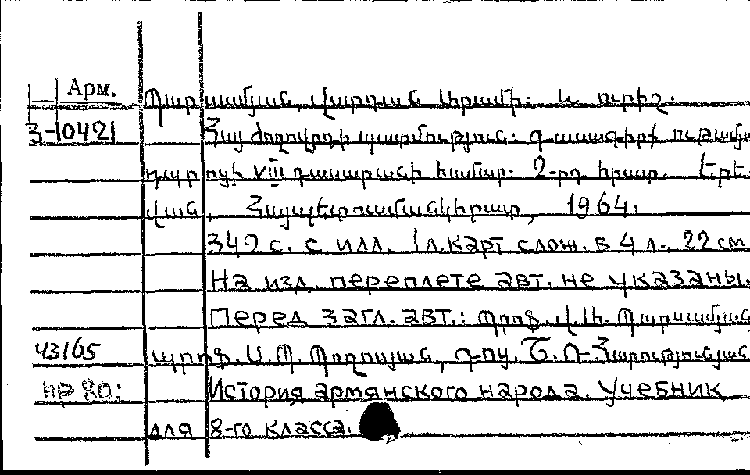 Арм.
Պարսամյան, Վարդան Արամի. և ուրիշ.
3-10421 Հայ ժողովրդի պատմություն: Դասագիրք ութամյա
դպրոցի VIII դասարանի համար. 2-րդ հրատ. Երե-
վան, Հայպետուսմանկհրատ, 1964.
342 с. с илл. 1 л. карт слож. в 4 л. 22 см
На изд. переплете авт. не указаны.
Перед загл. авт.: պրոֆ. Վ.Ա. Պարսամյան
43165 պրոֆ. Ս.Պ. Պողոսյան, դոց. Շ.Ռ. Հարությունյան
История армянского народа. Учебник
для 8-го класса.